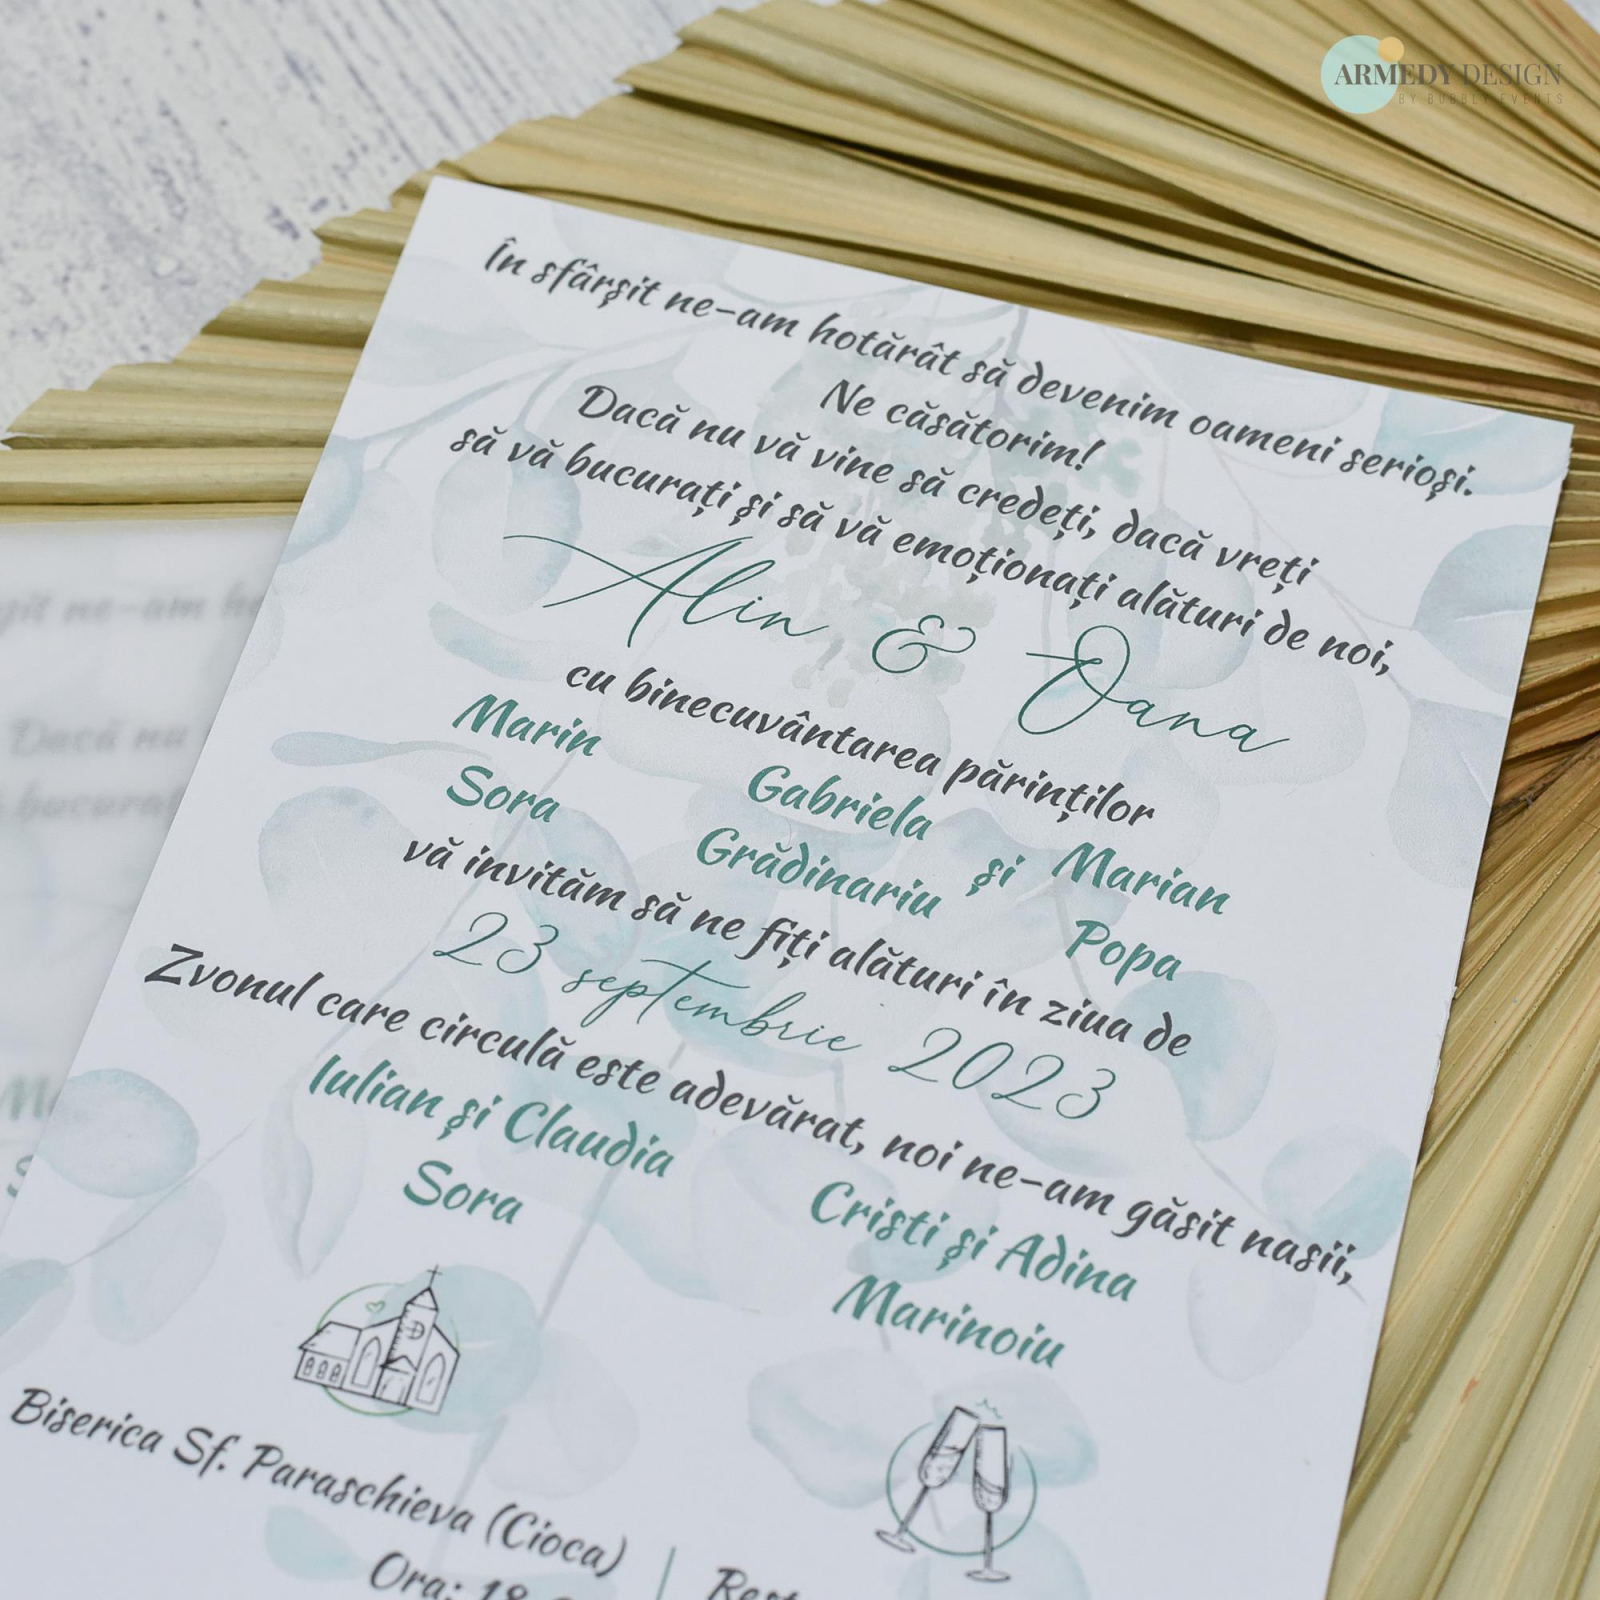 ARMEDY DESIGN
BY BUBBLY EVENTS
În sfârșit ne-am hotărât să devenim oameni serioși.
Ne căsătorim!
Dacă nu vă vine să credeți, dacă vreți
să vă bucurați și să vă emoționați alături de noi,
Alin & Oana
cu binecuvântarea părinților
Marin Gabriela și Marian
Sora Grădinariu Popa
vă invităm să ne fiți alături în ziua de
23 septembrie 2023
Zvonul care circulă este adevărat, noi ne-am găsit nașii,
Iulian și Claudia Cristi și Adina
Sora Marinoiu
Biserica Sf. Paraschieva (Cioca)
Ora: 18